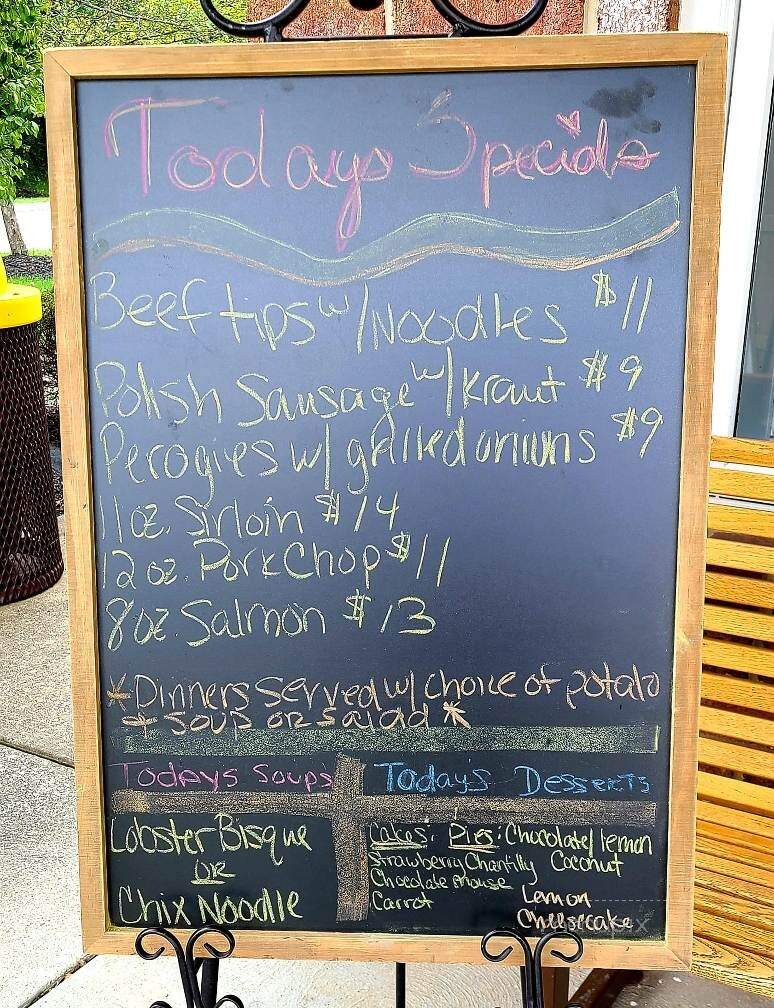 Todays Specials
Beef tips w/Noodles $11
Polish Sausage w/Kraut $9
Perogies w/ grilled onions $9
11oz. Sirloin $14
12 oz. Pork Chop $11
8oz Salmon $13
*Dinners Served w/ choice of potato
+ soup or salad *
Todays Soups
Today's Desserts
Lobster Bisque
or
Chix Noodle
Cakes: Pies: Chocolate/lemon
Strawberry Chantilly Coconut
Chocolate mouse
Carrot Lemon
Cheesecake